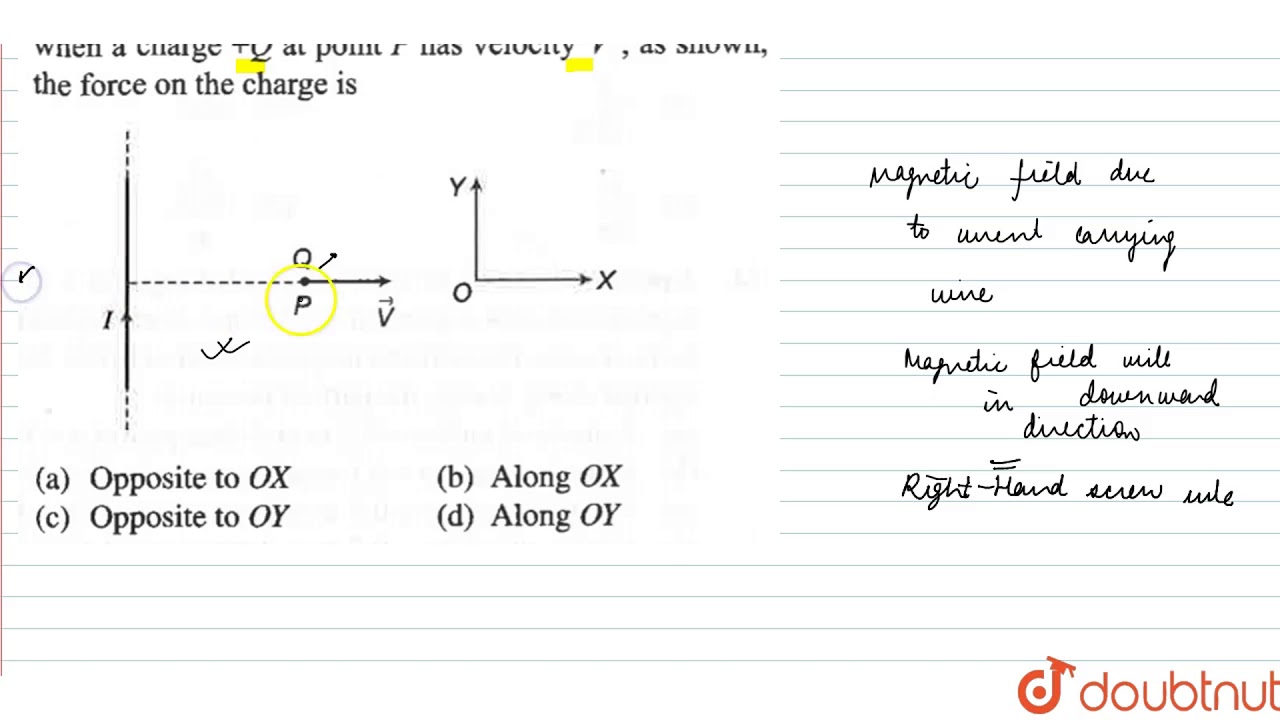 when a charge +Q at point P has velocity V , as shown,
the force on the charge is
Y
Q
O
X
P
V
I
(a) Opposite to OX
(b) Along OX
(c) Opposite to OY
(d) Along OY
Magnetic field due
to current carrying
wire
Magnetic field will
in downward
direction
Right-Hand screw rule
doubtnut